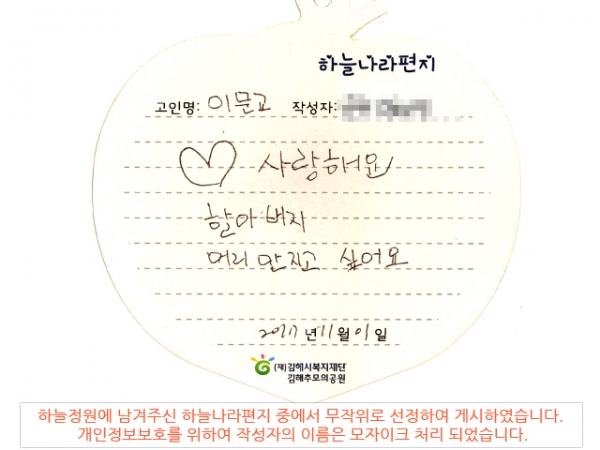 하늘나라편지
고인명: 이문교 작성자:
♡ 사랑해요
할아버지
머리 만지고 싶어요
2017년 11월 01일
(재)김해시복지재단
김해추모의공원
하늘정원에 남겨주신 하늘나라편지 중에서 무작위로 선정하여 게시하였습니다.
개인정보보호를 위하여 작성자의 이름은 모자이크 처리 되었습니다.